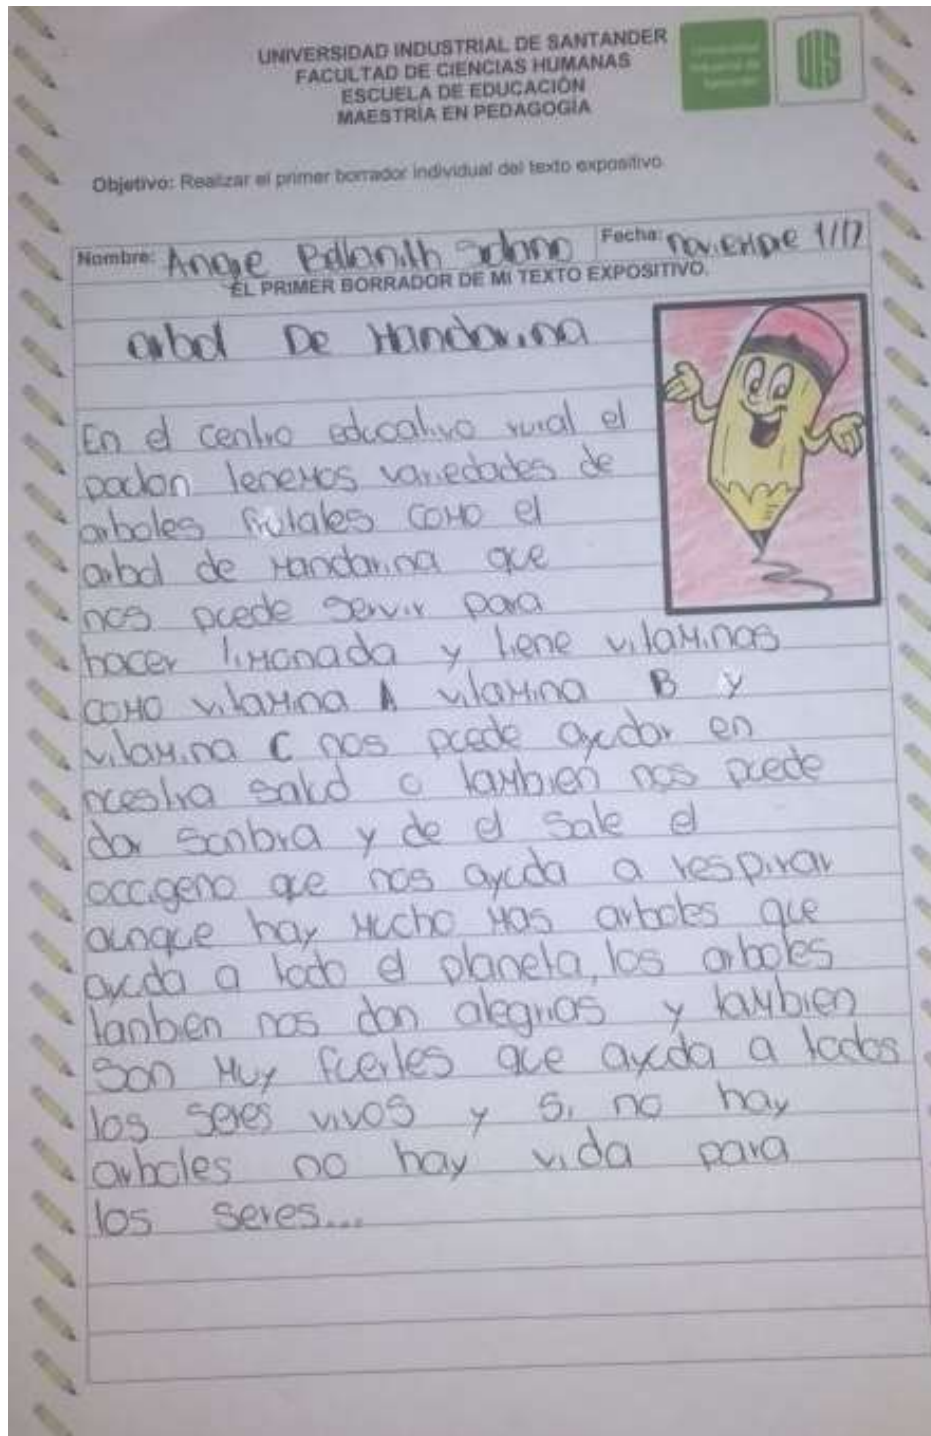 UNIVERSIDAD INDUSTRIAL DE SANTANDER
FACULTAD DE CIENCIAS HUMANAS
ESCUELA DE EDUCACIÓN
MAESTRÍA EN PEDAGOGÍA
Universidad
Industrial de
Santander
UIS
Objetivo: Realizar el primer borrador individual del texto expositivo.
Nombre: Angie Solano Fecha: noviembre 1/17
EL PRIMER BORRADOR DE MI TEXTO EXPOSITIVO.
arbol De Mandarina
En el centro educativo rural el
tenemos variedades de
arboles frutales como el
arbol de mandarina que
nos puede servir para
hacer limonada y tiene vitaminas
como vitamina A vitamina B y
vitamina C nos puede ayudar en
nuestra salud o tambien nos puede
dar sonbra y de el sale el
occigeno que nos ayuda a respirar
aunque hay mucho mas arboles que
ayuda a todo el planeta, los arboles
tanbien nos dan alegrias y tambien
son muy fuertes que ayuda a todos
los seres vivos y si no hay
arboles no hay vida para
los seres...